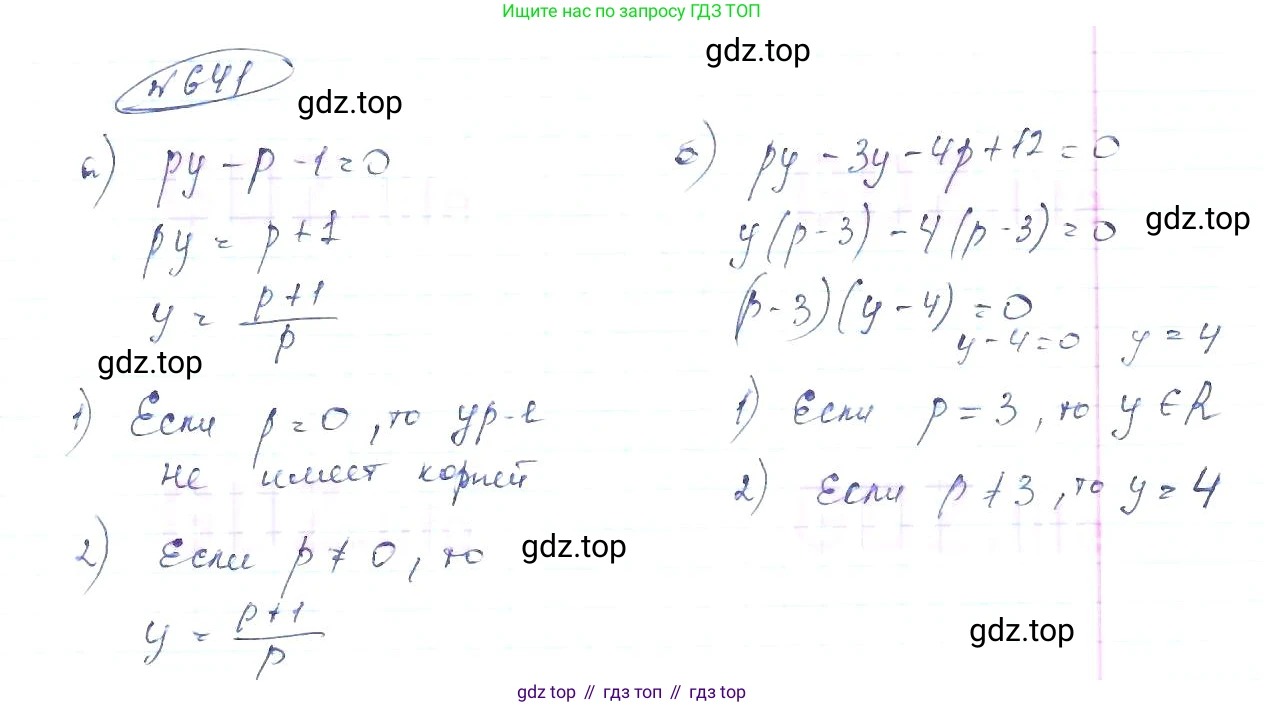 Ищите нас по запросу ГДЗ ТОП
gdz.top
№ 641
gdz.top
а) py - p - 1 = 0
py = p + 1
y = \frac{p+1}{p}
gdz.top
1) Если p = 0, то ур-е
не имеет корней
2) Если p ≠ 0, то
gdz.top
y = \frac{p+1}{p}
б) py - 3y - 4p + 12 = 0
y(p - 3) - 4(p - 3) = 0
gdz.top
(p - 3)(y - 4) = 0
y - 4 = 0 y = 4
1) Если p = 3, то y ∈ R
2) Если p ≠ 3, то y = 4
gdz.top
gdz top // гдз топ // gdz top